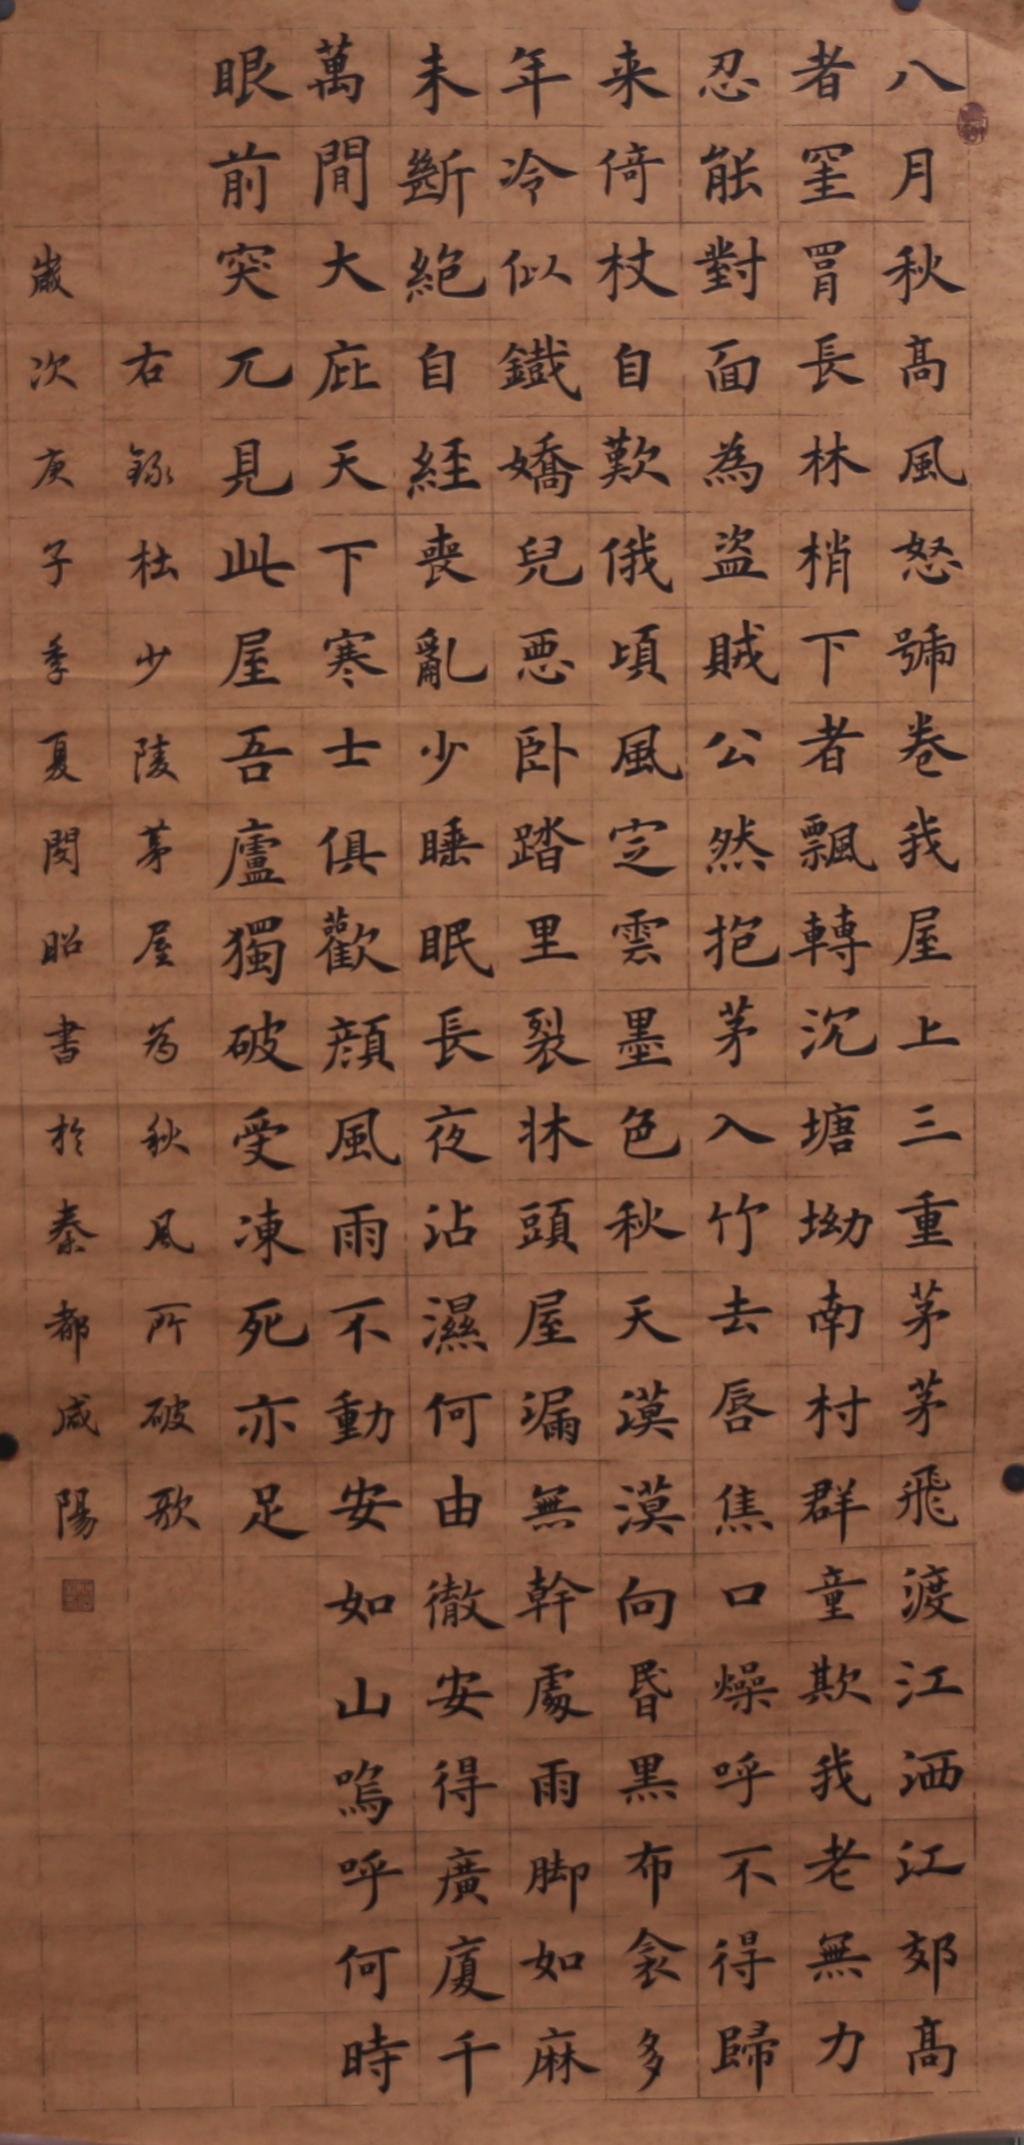 八月秋高風怒號卷我屋上三重茅茅飛渡江洒江郊高
者罣罥長林梢下者飄轉沉塘坳南村群童欺我老無力
忍能對面為盜賊公然抱茅入竹去唇焦口燥呼不得歸
来倚杖自歎俄頃風定雲墨色秋天漠漠向昏黑布衾多
年冷似鐵嬌兒惡卧踏里裂牀頭屋漏無幹處雨脚如麻
未斷絕自経喪亂少睡眠長夜沾濕何由徹安得廣廈千
萬間大庇天下寒士俱歡顏風雨不動安如山嗚呼何時
眼前突兀見此屋吾廬獨破受凍死亦足
右錄杜少陵茅屋為秋風所破歌
歲次庚子季夏閔昭書於秦都咸陽